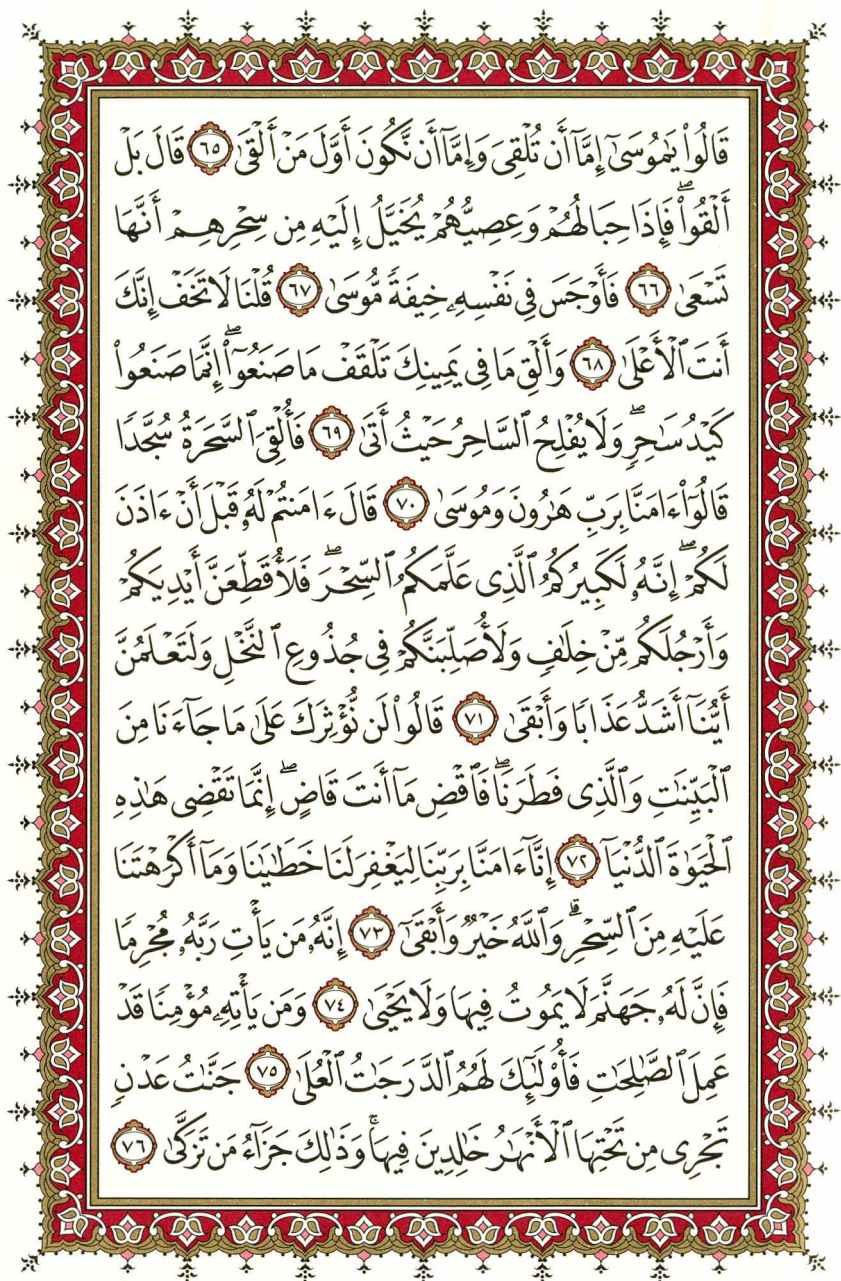 قَالُوا۟ يَٰمُوسَىٰٓ إِمَّآ أَن تُلْقِىَ وَإِمَّآ أَن نَّكُونَ أَوَّلَ مَنْ أَلْقَىٰ ٦٥ قَالَ بَلْ
أَلْقُوا۟ۖ فَإِذَا حِبَالُهُمْ وَعِصِيُّهُمْ يُخَيَّلُ إِلَيْهِ مِن سِحْرِهِمْ أَنَّهَا
تَسْعَىٰ ٦٦ فَأَوْجَسَ فِى نَفْسِهِۦ خِيفَةً مُّوسَىٰ ٦٧ قُلْنَا لَا تَخَفْ إِنَّكَ
أَنتَ ٱلْأَعْلَىٰ ٦٨ وَأَلْقِ مَا فِى يَمِينِكَ تَلْقَفْ مَا صَنَعُوٓا۟ۖ إِنَّمَا صَنَعُوا۟
كَيْدُ سَٰحِرٍۖ وَلَا يُفْلِحُ ٱلسَّاحِرُ حَيْثُ أَتَىٰ ٦٩ فَأُلْقِىَ ٱلسَّحَرَةُ سُجَّدًا
قَالُوٓا۟ ءَامَنَّا بِرَبِّ هَٰرُونَ وَمُوسَىٰ ٧٠ قَالَ ءَامَنتُمْ لَهُۥ قَبْلَ أَنْ ءَاذَنَ
لَكُمْۖ إِنَّهُۥ لَكَبِيرُكُمُ ٱلَّذِى عَلَّمَكُمُ ٱلسِّحْرَۖ فَلَأُقَطِّعَنَّ أَيْدِيَكُمْ
وَأَرْجُلَكُم مِّنْ خِلَٰفٍ وَلَأُصَلِّبَنَّكُمْ فِى جُذُوعِ ٱلنَّخْلِ وَلَتَعْلَمُنَّ
أَيُّنَآ أَشَدُّ عَذَابًا وَأَبْقَىٰ ٧١ قَالُوا۟ لَن نُّؤْثِرَكَ عَلَىٰ مَا جَآءَنَا مِنَ
ٱلْبَيِّنَٰتِ وَٱلَّذِى فَطَرَنَاۖ فَٱقْضِ مَآ أَنتَ قَاضٍۖ إِنَّمَا تَقْضِى هَٰذِهِ
ٱلْحَيَوٰةَ ٱلدُّنْيَآ ٧٢ إِنَّآ ءَامَنَّا بِرَبِّنَا لِيَغْفِرَ لَنَا خَطَٰيَٰنَا وَمَآ أَكْرَهْتَنَا
عَلَيْهِ مِنَ ٱلسِّحْرِۗ وَٱللَّهُ خَيْرٌ وَأَبْقَىٰٓ ٧٣ إِنَّهُۥ مَن يَأْتِ رَبَّهُۥ مُجْرِمًا
فَإِنَّ لَهُۥ جَهَنَّمَ لَا يَمُوتُ فِيهَا وَلَا يَحْيَىٰ ٧٤ وَمَن يَأْتِهِۦ مُؤْمِنًا قَدْ
عَمِلَ ٱلصَّٰلِحَٰتِ فَأُو۟لَٰٓئِكَ لَهُمُ ٱلدَّرَجَٰتُ ٱلْعُلَىٰ ٧٥ جَنَّٰتُ عَدْنٍ
تَجْرِى مِن تَحْتِهَا ٱلْأَنْهَٰرُ خَٰلِدِينَ فِيهَاۚ وَذَٰلِكَ جَزَآءُ مَن تَزَكَّىٰ ٧٦